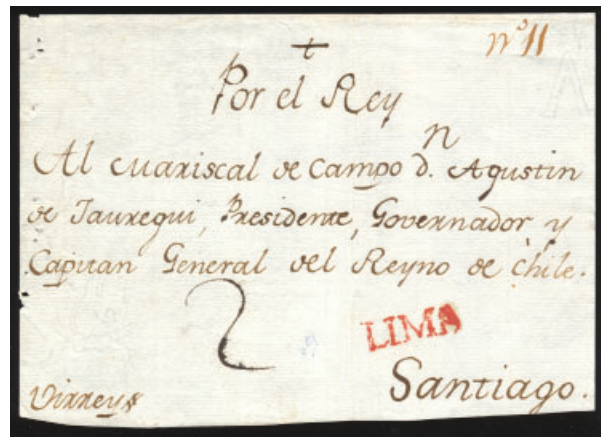 +
Nº 11
Por el Rey
Al Mariscal de Campo d.n Agustin
de Jauregui, Presidente, Governador y
Capitan General del Reyno de Chile.
2
LIMA
Santiago.
Virrey